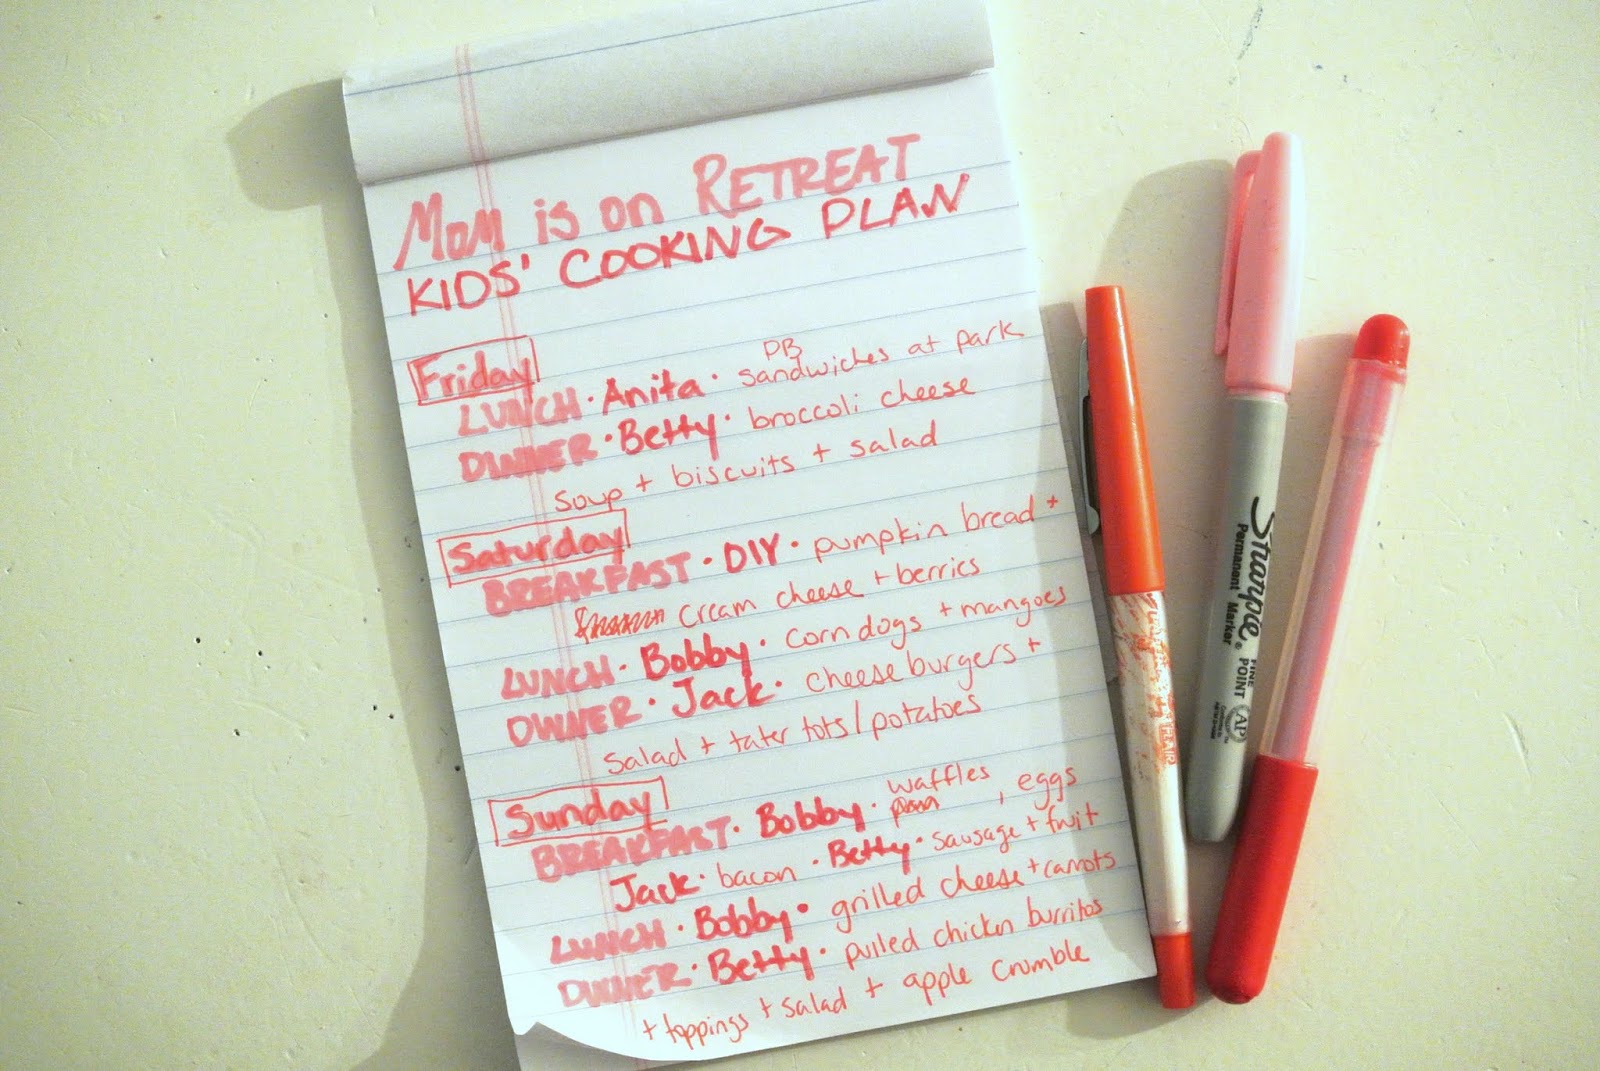 MOM is on RETREAT
KIDS' COOKING PLAN
Friday
LUNCH · Anita · PB sandwiches at park
DINNER · Betty · broccoli cheese
soup + biscuits + salad
Saturday
BREAKFAST · DIY · pumpkin bread +
cream cheese + berries
LUNCH · Bobby · corn dogs + mangoes
DINNER · Jack · cheese burgers +
salad + tater tots/potatoes
Sunday
BREAKFAST · Bobby · waffles, eggs
Jack · bacon · Betty · sausage + fruit
LUNCH · Bobby · grilled cheese + carrots
DINNER · Betty · pulled chicken burritos
+ toppings + salad + apple crumble
Sharpie
Permanent Marker
FINE
POINT
AP
FLAIR